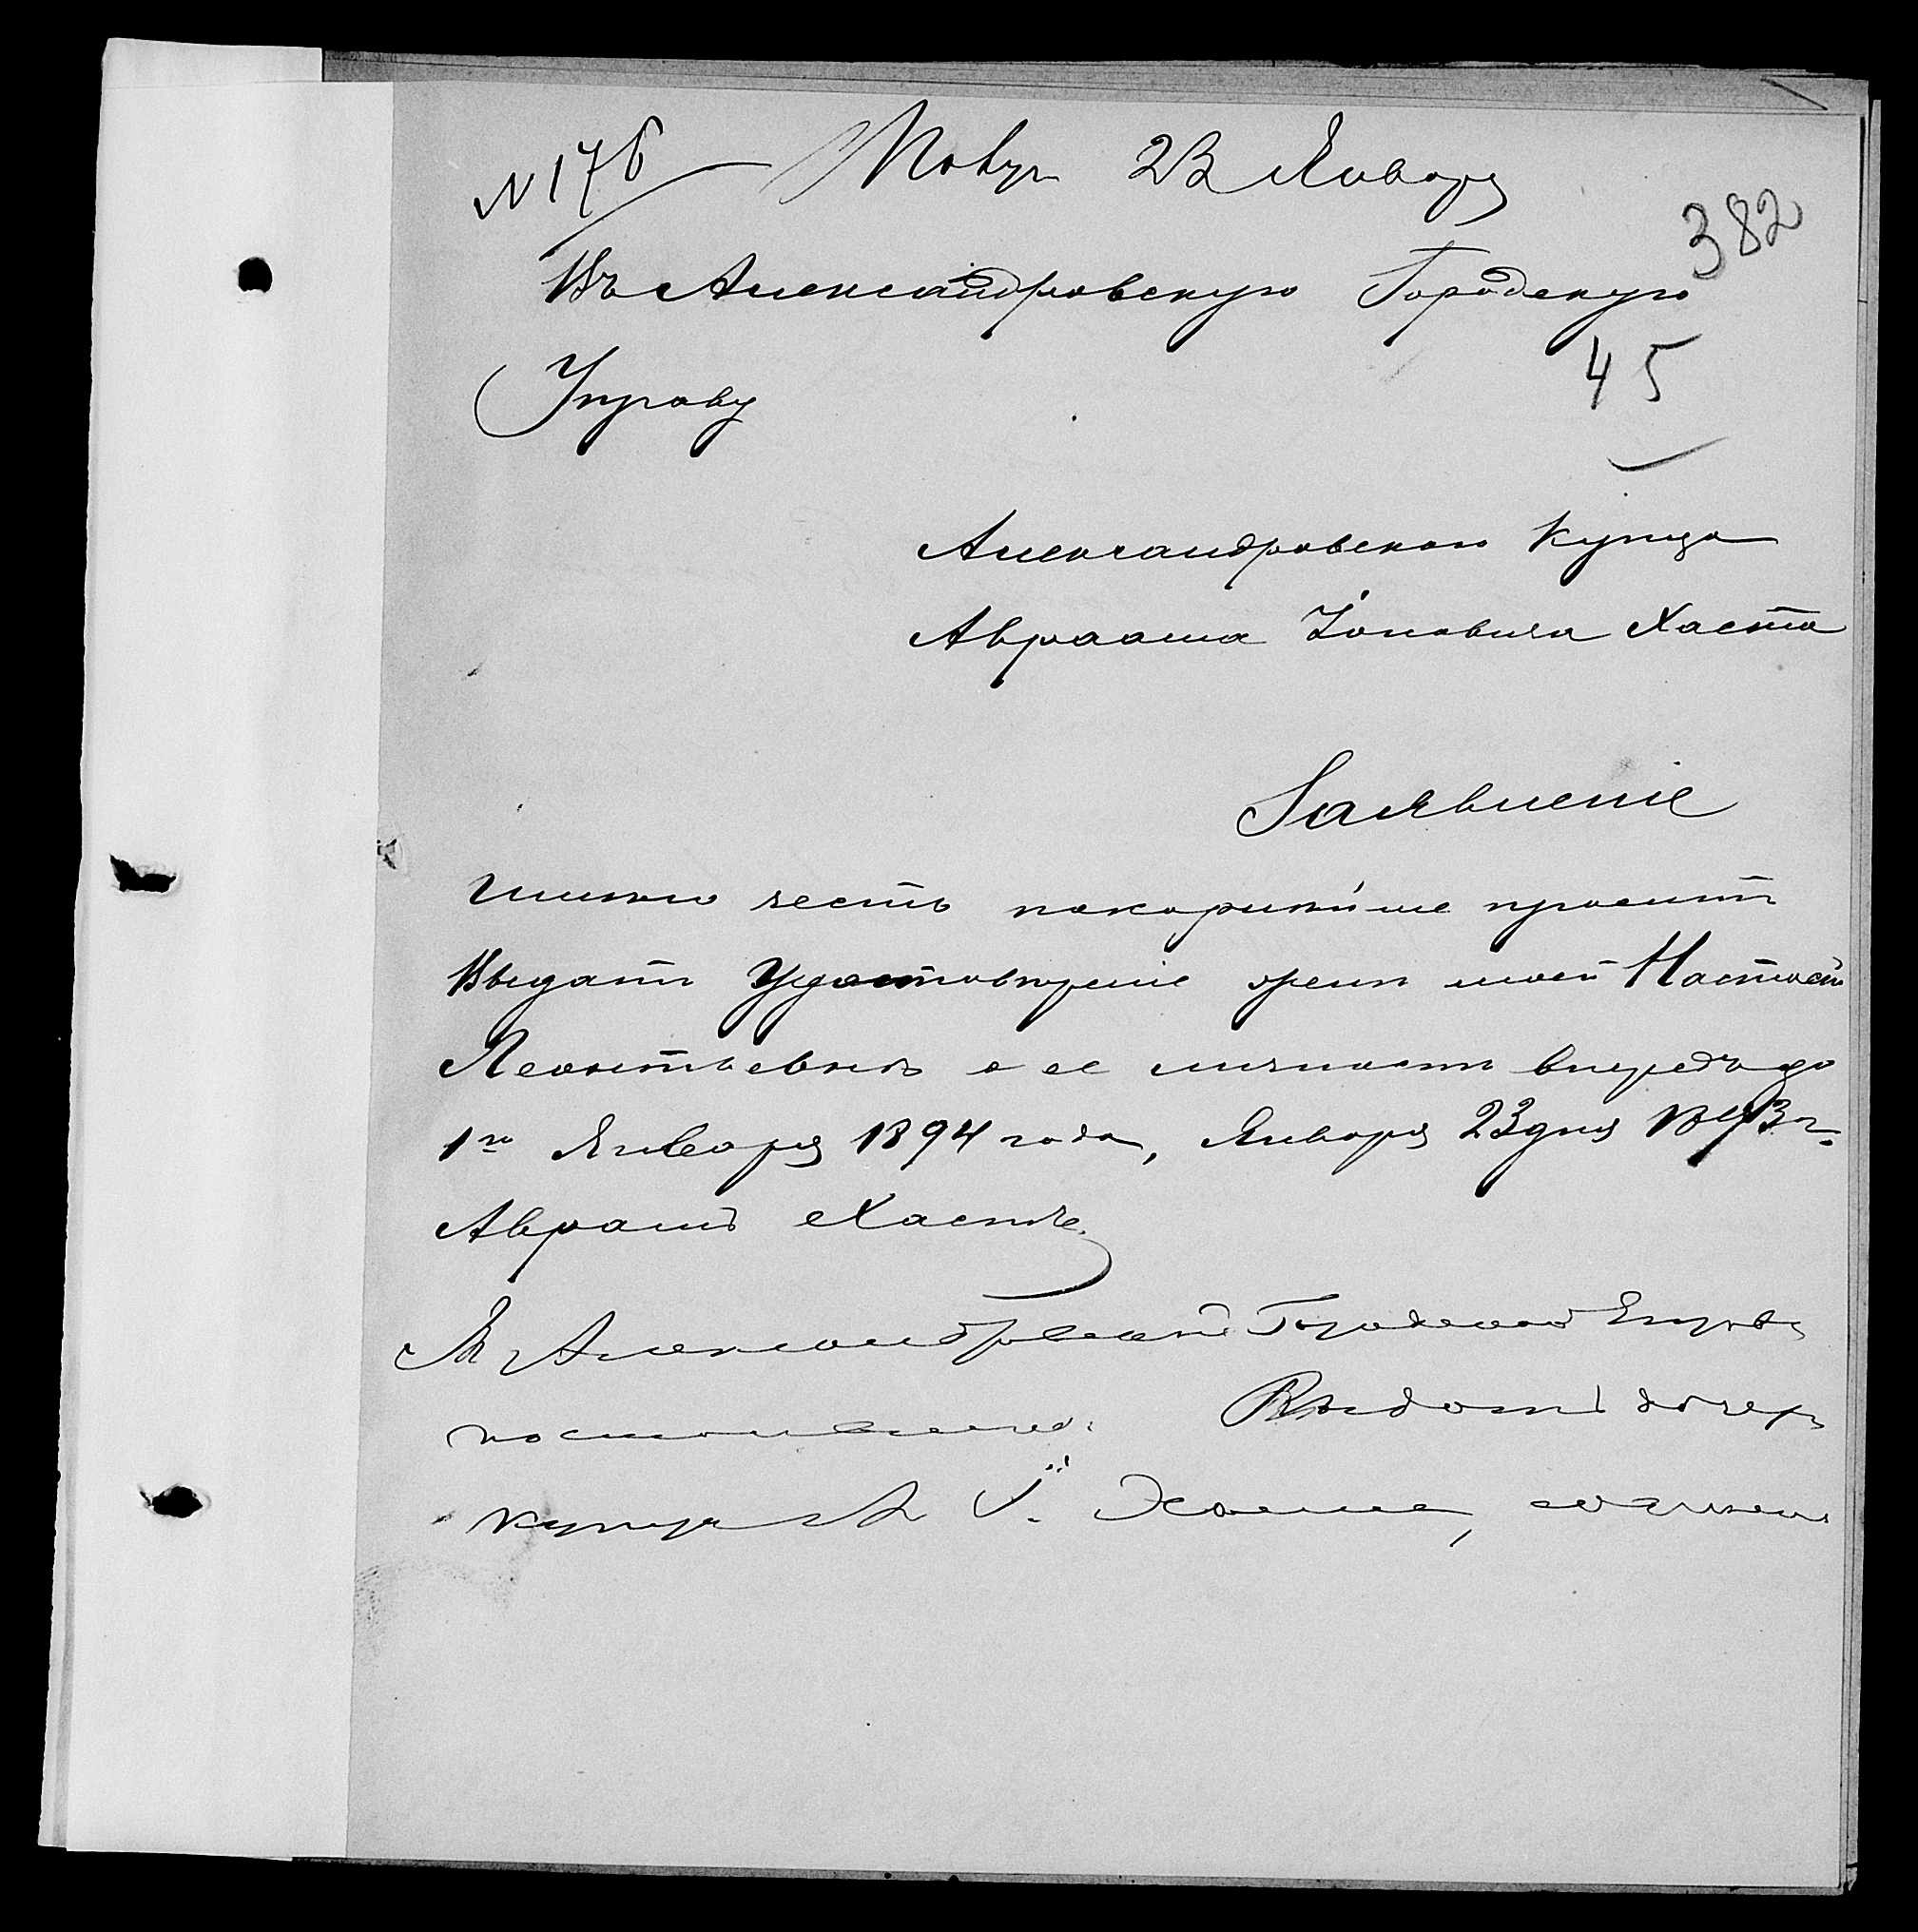 N 176 Получ 23 Января
382
Въ Александровскую Городскую
45
Управу
Александровскаго Купца
Авраама Іоновича Хаста
Заявленіе
Имѣю честь покорнѣйше просить
Выдать Удостовѣреніе женѣ моей Настасьи
Леонтьевнѣ о ее личности впредь до
1го Января 1894 года, Января 23 дня 1893 г.
Авраамъ Хастъ
Въ Александровской Городской Управѣ
постановлено: Выдать
купца А І. Хаста,